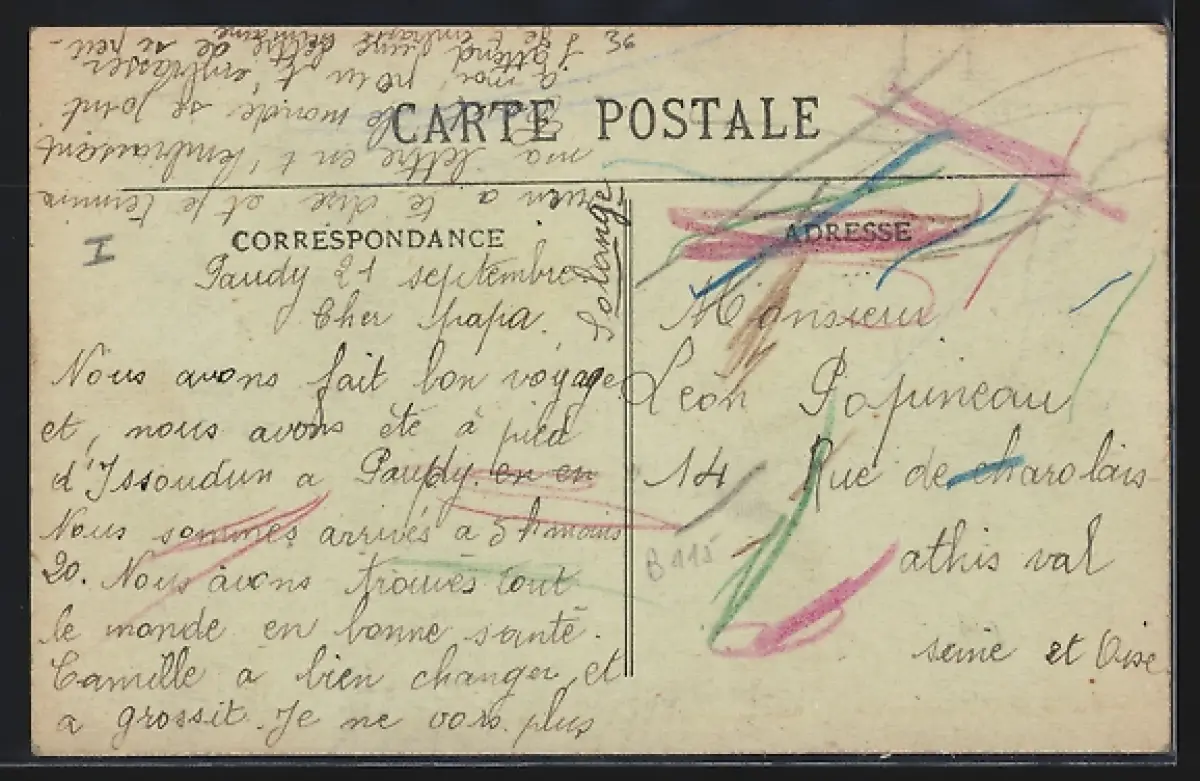 CARTE POSTALE
CORRESPONDANCE
I
Paudy 21 septembre
Cher papa.
Nous avons fait bon voyage
et, nous avons été à pied
d'Issoudun a Paudy. en en
Nous sommes arrivés a 5 h moins
20. Nous avons trouvés tout
le monde en bonne santé.
Camille a bien changer et
a grossit. Je ne vois plus
rien a te dire et je termine
ma lettre en t'embrassent
le monde se joint
a moi pour t'embrasser
J'attend une lettre de
Solange
ADRESSE
Monsieur
Léon Papineau
14 Rue de charolais
athis val
seine et Oise
B115